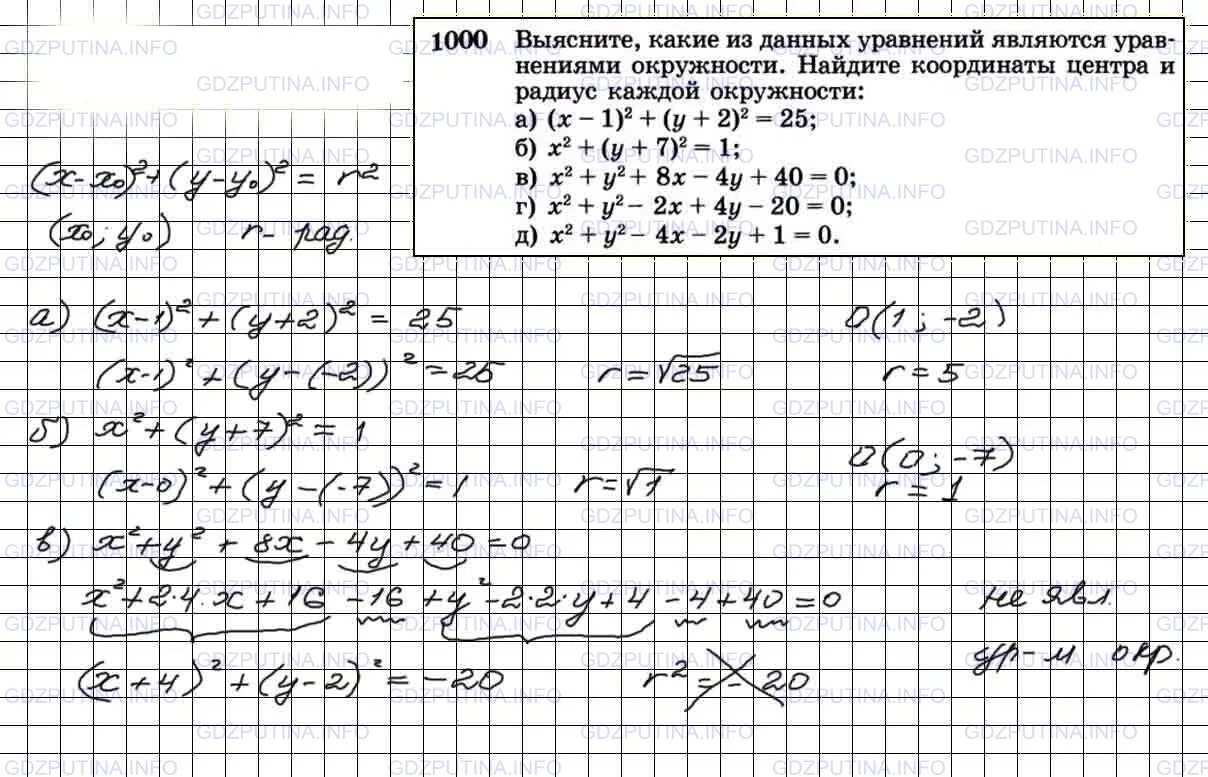 1000 Выясните, какие из данных уравнений являются урав-
нениями окружности. Найдите координаты центра и
радиус каждой окружности:
а) (x − 1)² + (y + 2)² = 25;
б) x² + (y + 7)² = 1;
в) x² + y² + 8x − 4y + 40 = 0;
г) x² + y² − 2x + 4y − 20 = 0;
д) x² + y² − 4x − 2y + 1 = 0.
(x-x₀)²+(y-y₀)² = r²
(x₀; y₀) r- рад.
а) (x-1)² + (y+2)² = 25 O(1; -2)
(x-1)² + (y-(-2))² = 25 r = √25 r = 5
б) x² + (y+7)² = 1 O(0; -7)
(x-0)² + (y-(-7))² = 1 r = √1 r = 1
в) x² + y² + 8x - 4y + 40 = 0
x² + 2·4·x + 16 - 16 + y² - 2·2·y + 4 - 4 + 40 = 0 не явл.
ур-м окр.
(x+4)² + (y-2)² = -20 r² = -20
GDZPUTINA.INFO